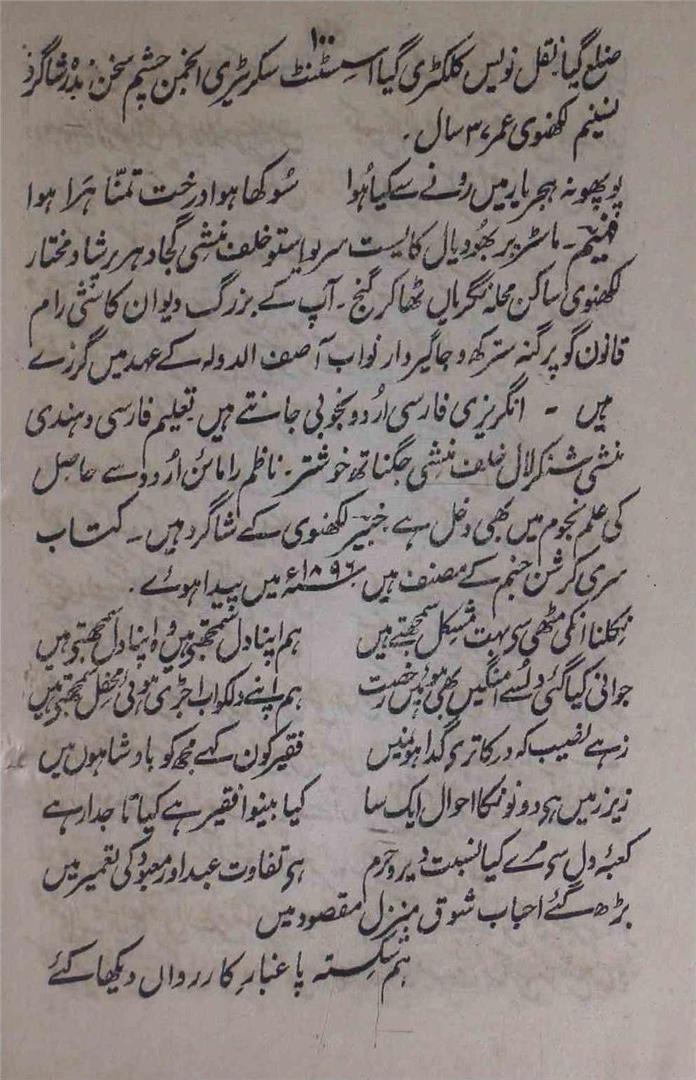 ۱۰۰
ضلع گیا۔ نقل نویس کلکٹری گیا اسسٹنٹ سکریٹری انجمن چشمہ سخن بذہ شاگرد
تسنیم لکھنوی عمر ۳۷ سال۔
پوچھو نہ ہجر یار میں رونے سے کیا ہُوا سُوکھا ہوا درخت تمنّا ہَرا ہوا
فہیم۔ ماسٹر پربھو دیال کایست سریواستو خلف منشی گجادہر پرشاد مختار
لکھنوی ساکن محلہ ٹگریاں ٹھاکر گنج۔ آپ کے بزرگ دیوان کانشی رام
قانون گو پرگنہ سترکھ و جاگیردار نواب آصف الدولہ کے عہد میں گزرے
ہیں ۔ انگریزی فارسی اُردو بخوبی جانتے ہیں تعلیم فارسی و ہندی
منشی شنکر لال خلف منشی جگناتھ خوشتر۔ ناظم رامائن اُردو سے حاصل
کی علم نجوم میں بھی دخل ہے خبیر لکھنوی کے شاگرد ہیں۔ کتاب
سری کرشن جنم کے مصنف ہیں ۱۸۹۶ء میں پیدا ہوئے۔
نِکلنا انکی مٹھی سی بہت مشکل سمجھتے ہیں ہم اپنا دل سمجھتی ہیں وُہ اپنا دل سمجھتی ہیں
جوانی کیا گئی دلسے اُمنگیں بھی ہوئیں رخصت ہم اپنے دلکو اب اجڑی ہوئی محفل سمجھتی ہیں
زہے نصیب کہ در کا تری گدا ہوں میں فقیر کون کہے مجھ کو بادشاہ ہوں میں
زیر زمیں ہی دونونکا احوال ایک سا کیا بینوا فقیر ہے کیا تاجدار ہے
کعبۂ دل سی مرے کیا نسبت دیر و حرم ہی تفاوت عبد اور معبود کی تعمیر میں
بڑھ گئے احباب شوق منزل مقصود میں
ہم شکستہ پا غبار کارواں دیکھا کئے